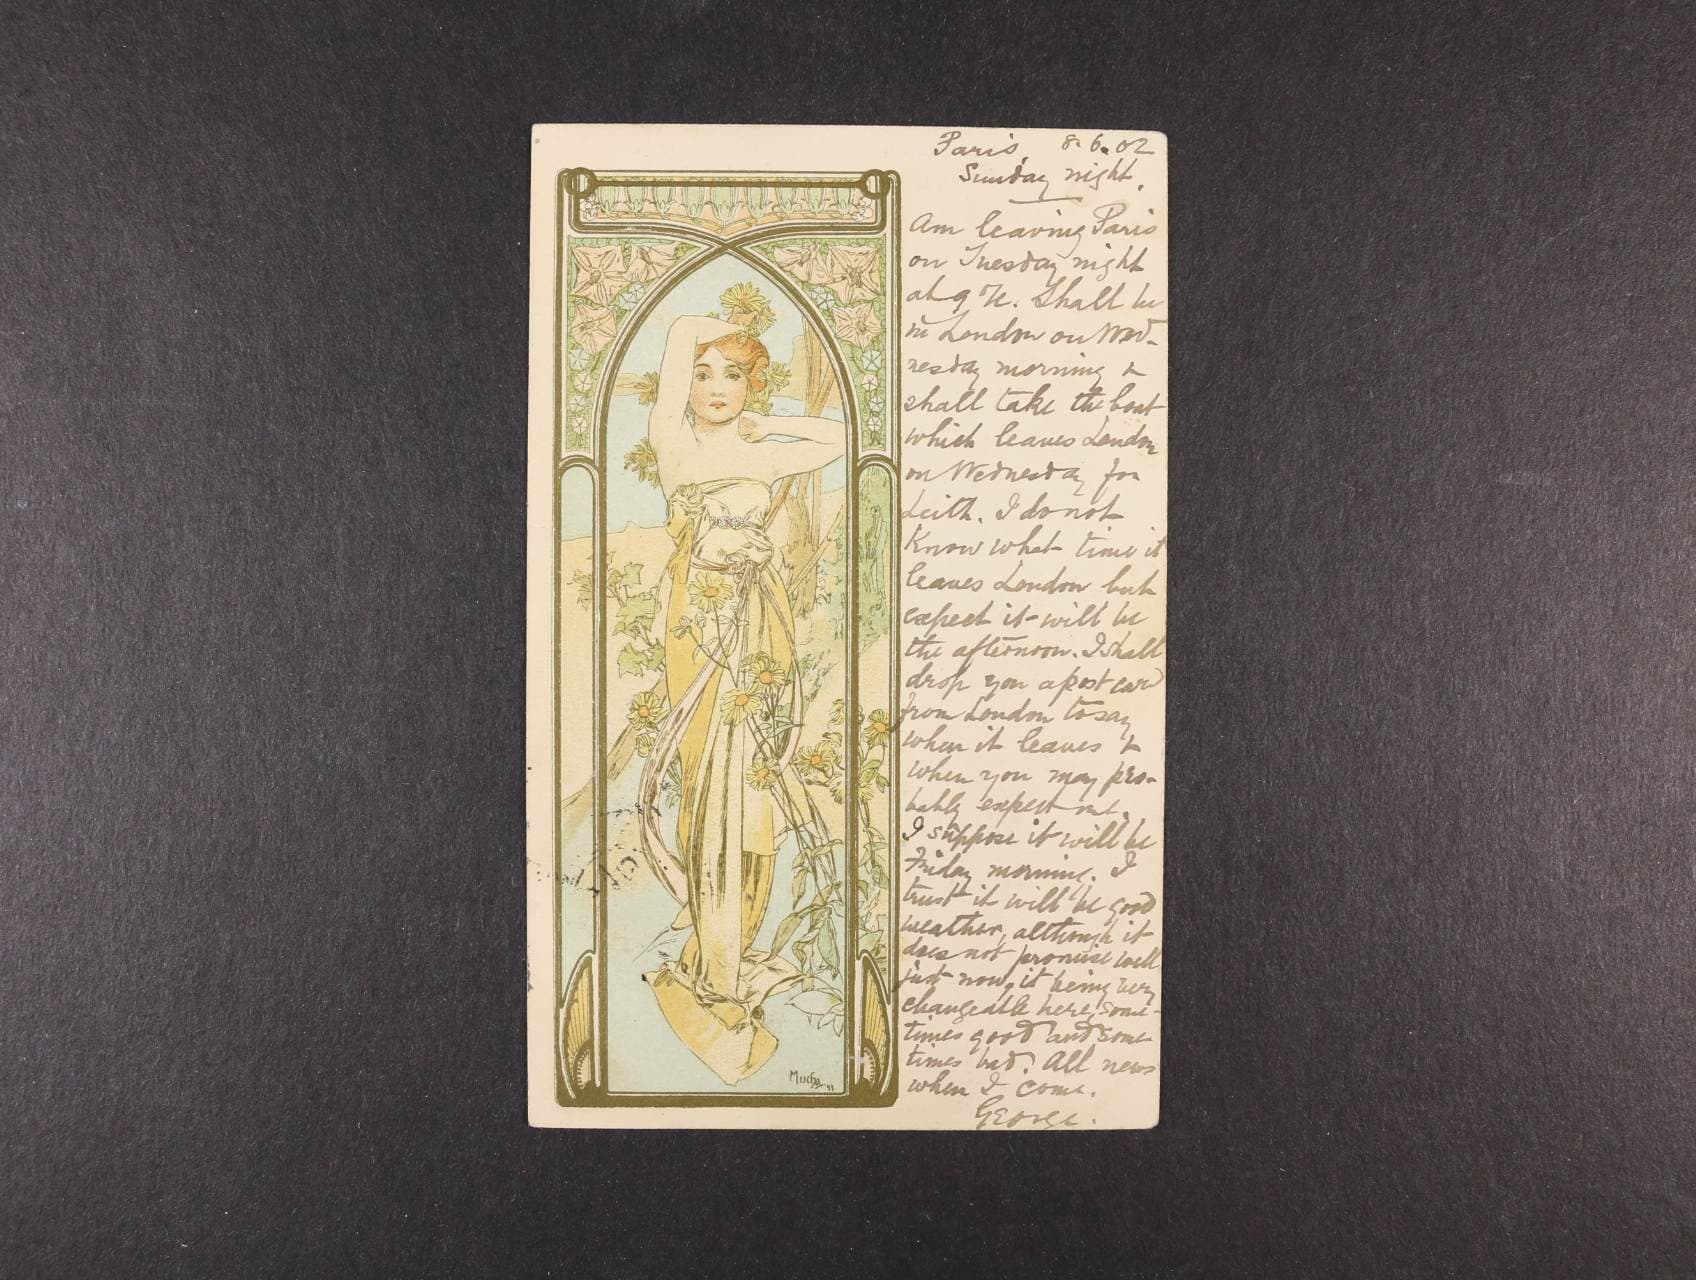 Paris, 8.6.02
Sunday night.
Am leaving Paris
on Tuesday night
at 9 Shall be
in London on Wed-
nesday morning &
shall take the boat
which leaves London
on Wednesday for
Leith. I do not
Know what time it
leaves London but
expect it will be
the afternoon. I shall
drop you a post card
from London to say
when it leaves &
when you may pro-
bably expect me.
I suppose it will be
Friday morning. I
trust it will be good
weather, although it
does not promise well
just now, it being very
changeable here, some-
times good and some
times bad. All news
when I come.
George.
Mucha